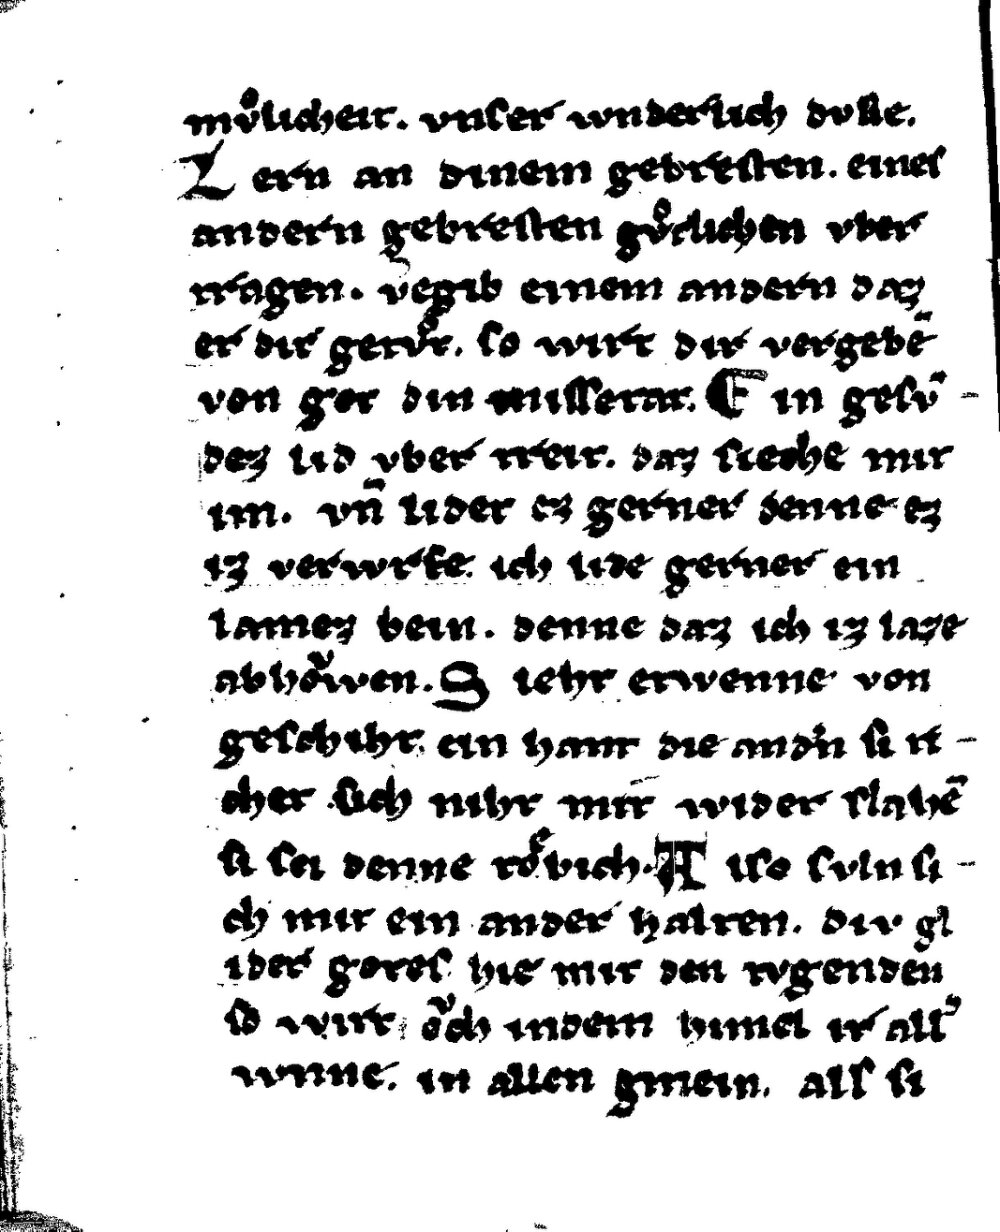 mvͦlicheit. vnser wnderlich dvlte.
Lern an dinem gebresten. eines
andern gebresten gvͦtlichen vber
tragen. vegib einem andern daz
er dir getvͦt. so wirt dir vergebē
von got din missetat. Ein gesv̄-
dez lid vber treit. daz sieche mit
im. vn̄ lidet ez gerner denne ez
iz verwrfe. ich lide gerner ein
lamez bein. denne daz ich iz laze
abhoͮwen. Sieht etwenne von
geschiht. ein hant die andˀn si ri-
chet sich niht mit wider slahē
si sei denne toͤbich. Also svln si-
ch mit ein ander halten. div gl
ider gotes hie mit den tvgenden
so wirt oͮch indem himel ir allˀ
wnne. in allen gmein. als si